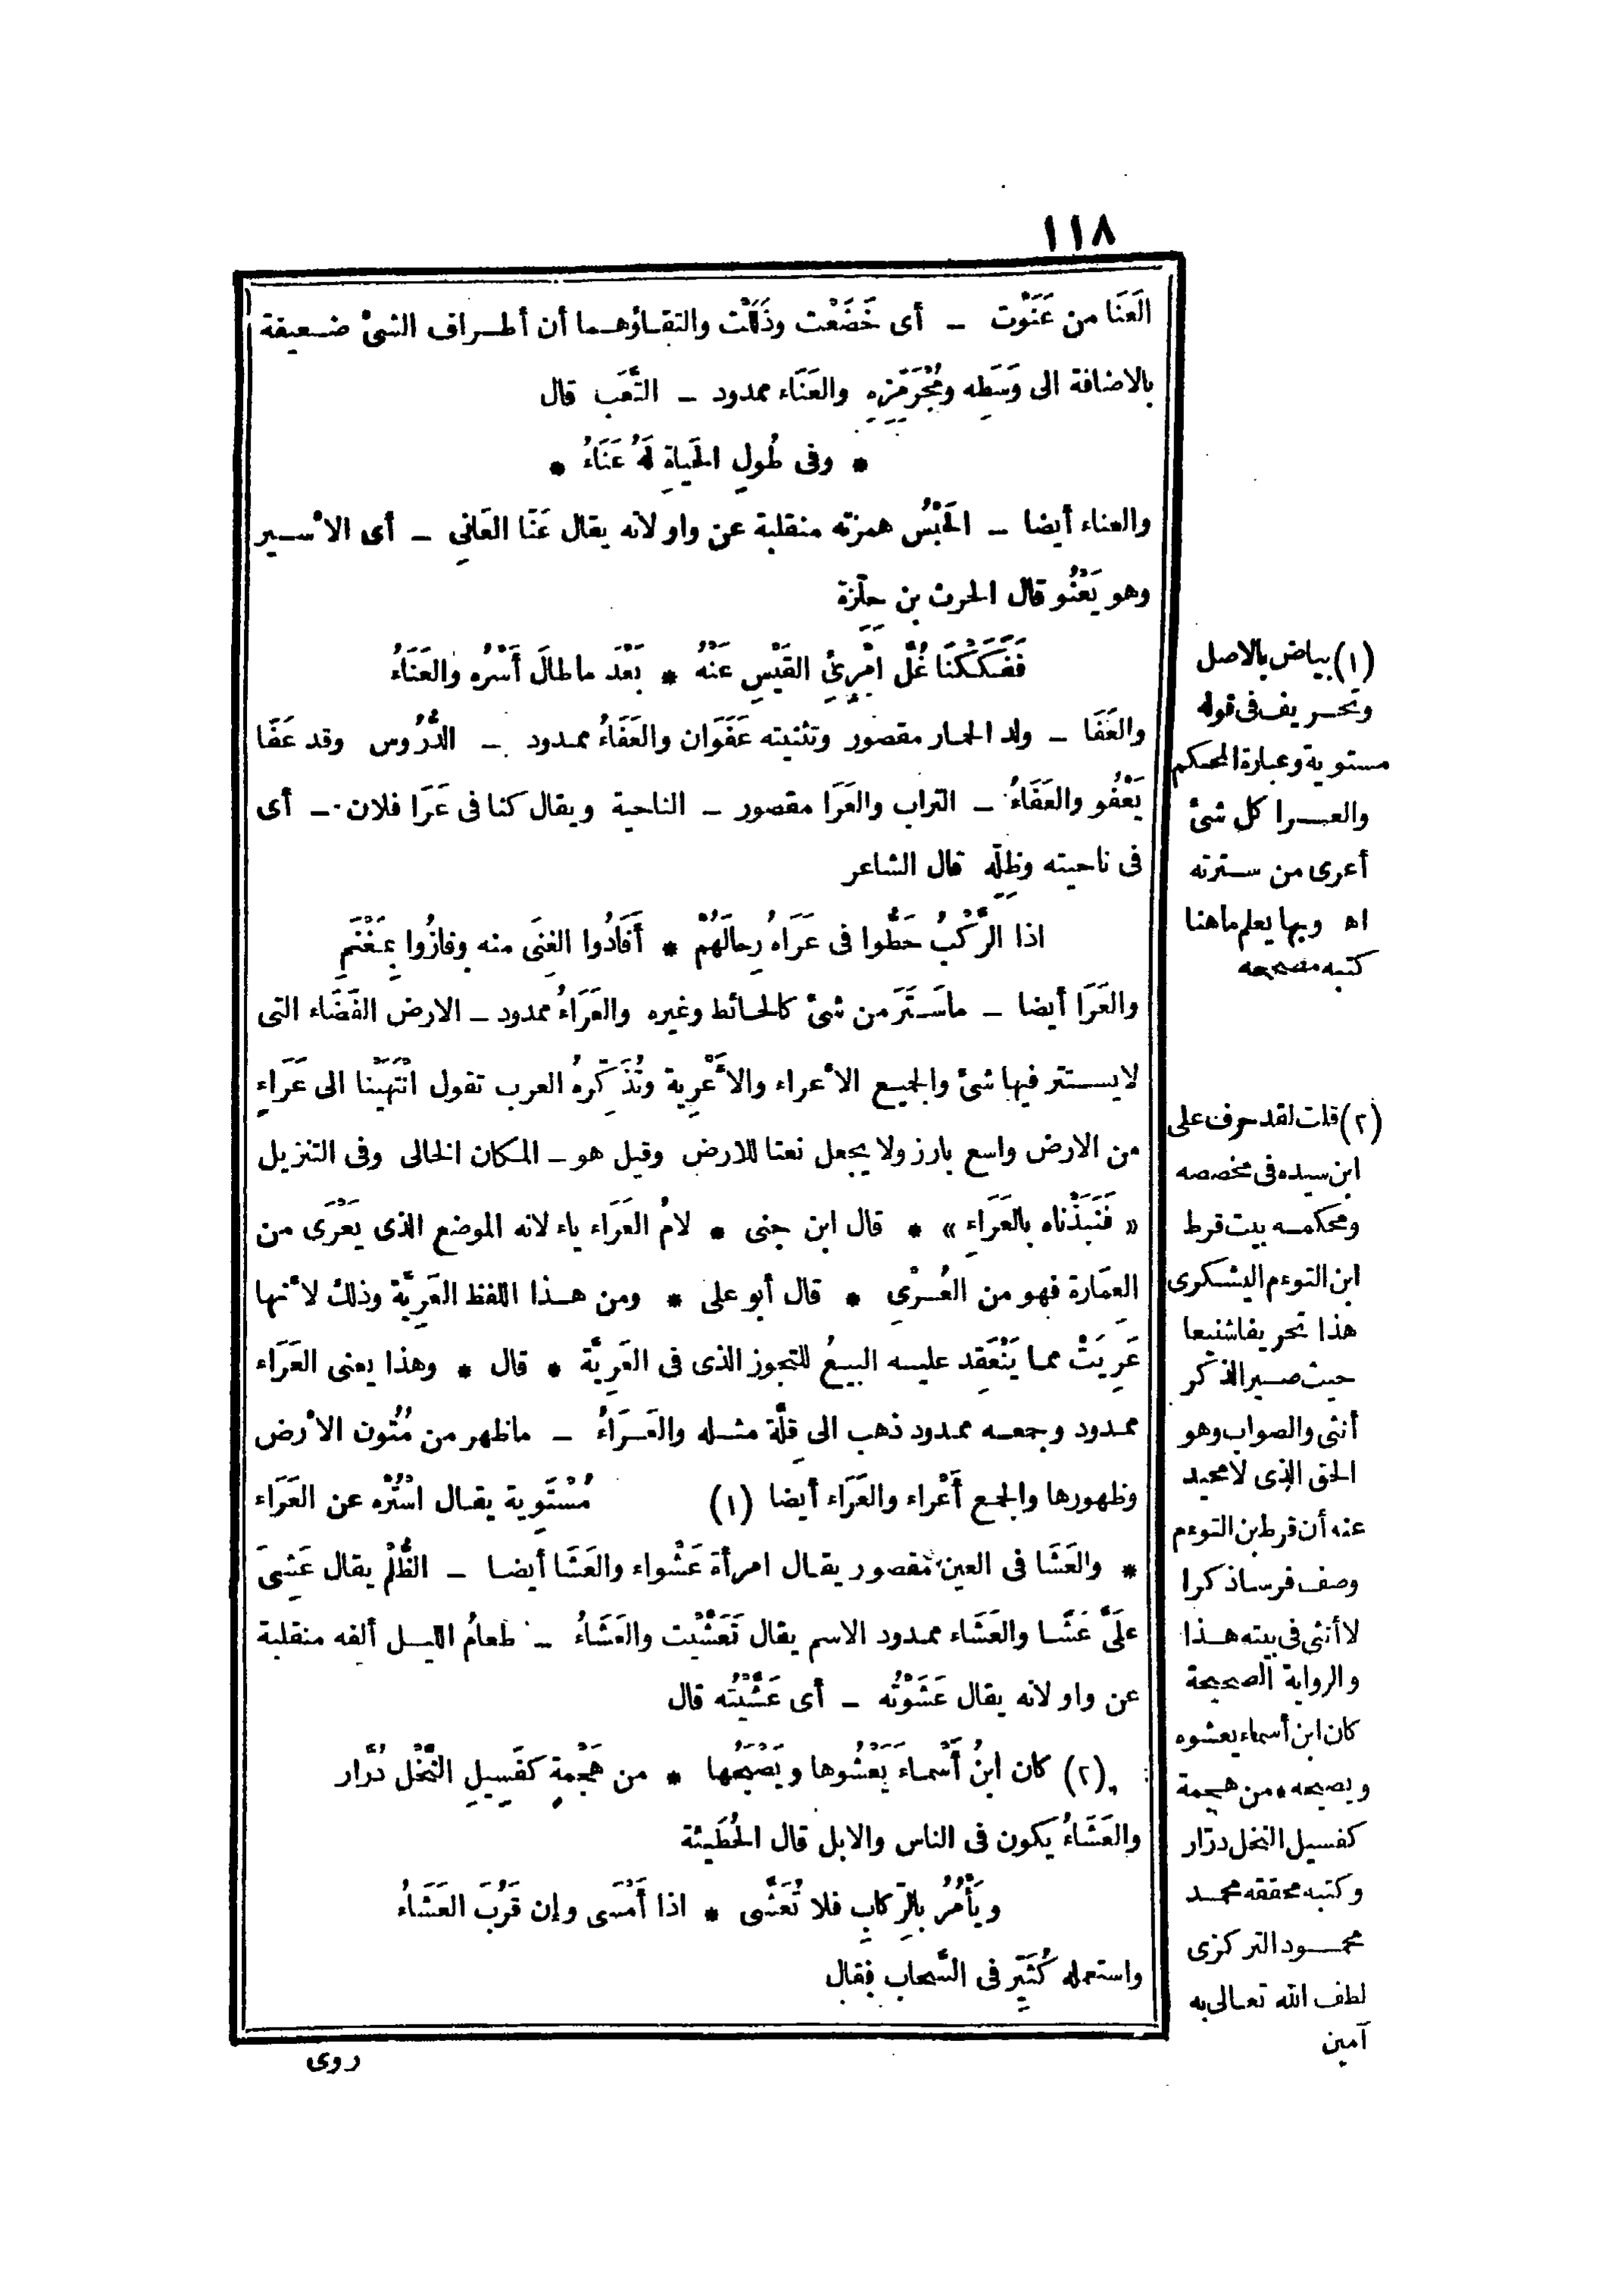 ١١٨
العَنَا من عَنَوْت – أى خَضَعْت وذَلَلْت والتقاؤهما أن أطراف الشئ ضعيفة
بالاضافة الى وَسَطِه ومُجْرَمِّزِه والعَنَاء ممدود – التَّعَب قال
* وفى طُولِ الحَياةِ لَهُ عَنَاءُ *
والعناء أيضا – الحَبْسُ همزته منقلبة عن واو لانه يقال عَنَا العَانِى – أى الأسير
وهو يَعْنُو قال الحرث بن حِلِّزة
فَفَكَكْنَا غُلَّ امْرِئِ القَيْسِ عَنْهُ * بَعْدَ ما طالَ أَسْرُه والعَنَاءُ
والعَفَا – ولد الحمار مقصور وتثنيته عَفَوَان والعَفَاءُ ممدود – الدُّرُوس وقد عَفَا
يَعْفُو والعَفَاءُ – التراب والعَرَا مقصور – الناحية ويقال كنا فى عَرَا فلان – أى
فى ناحيته وظِلِّه قال الشاعر
اذا الرَّكْبُ حَطُّوا فى عَرَاهُ رِحالَهُمْ * أَفَادُوا الغِنَى منه وفازُوا بِمَغْنَمِ
والعَرَا أيضا – ماسَتَرَ من شئ كالحائط وغيره والعَرَاءُ ممدود – الارض الفَضَاء التى
لايستتر فيها شئ والجميع الأعراء والأَعْرِية وتُذَكِّرهُ العرب تقول انْتَهَيْنا الى عَرَاءٍ
من الارض واسع بارز ولا يجعل نعتا للارض وقيل هو – المكان الخالى وفى التنزيل
« فَنَبَذْناه بالعَرَاءِ » * قال ابن جنى * لامُ العَرَاء ياء لانه الموضع الذى يَعْرَى من
العِمَارة فهو من العُرْىِ * قال أبو على * ومن هذا اللفظ العَرِيَّة وذلك لأنها
عَرِيَتْ مما يَنْعَقِد عليه البيعُ للتجوز الذى فى العَرِيَّة * قال * وهذا يعنى العَرَاء
ممدود وجمعه ممدود ذهب الى قِلَّة مثله والعَرَاءُ – ماظهر من مُتُون الأرض
وظهورها والجمع أَعْراء والعَرَاء أيضا (١) مُسْتَوِية يقال اسْتُرْه عن العَرَاء
* والعَشَا فى العين مقصور يقال امرأة عَشْواء والعَشَا أيضا – الظُّلْم يقال عَشِىَ
علَىَّ عَشًا والعَشَاء ممدود الاسم يقال تَعَشَّيْت والعَشَاءُ – طعامُ الليل ألفه منقلبة
عن واو لانه يقال عَشَوْتُه – أى عَشَّيْتُه قال
(٢) كان ابنُ أَسْماءَ يَعْشُوها ويَصْبَحُها * من هَجْمةٍ كفَسِيلِ النَّخْل دُرَّار
والعَشَاءُ يكون فى الناس والابل قال الحُطَيئة
ويَأْمُرُ بالرِّكابِ فلا تُعَشَّى * اذا أَمْسَى وإن قَرُبَ العَشَاءُ
واستعمله كُثَيِّر فى السَّحاب فقال
روى
(١) بياض بالاصل
وتحريف فى قوله
مستوية وعبارة المحكم
والعرا كل شئ
أعرى من سترته
اه وبها يعلم ماهنا
كتبه مصححه
(٢) قلت لقد حرف على
ابن سيده فى مخصصه
ومحكمه بيت قرط
ابن التوءم اليشكرى
هذا تحريفا شنيعا
حيث صير الذكر
أنثى والصواب وهو
الحق الذى لا محيد
عنه أن قرط بن التوءم
وصف فرسا ذكرا
لا أنثى فى بيته هذا
والرواية الصحيحة
كان ابن أسماء يعشوه
ويصبحه * من هجمة
كفسيل النخل درّار
وكتبه محققه محمد
محمود التركزى
لطف الله تعالى به
آمين